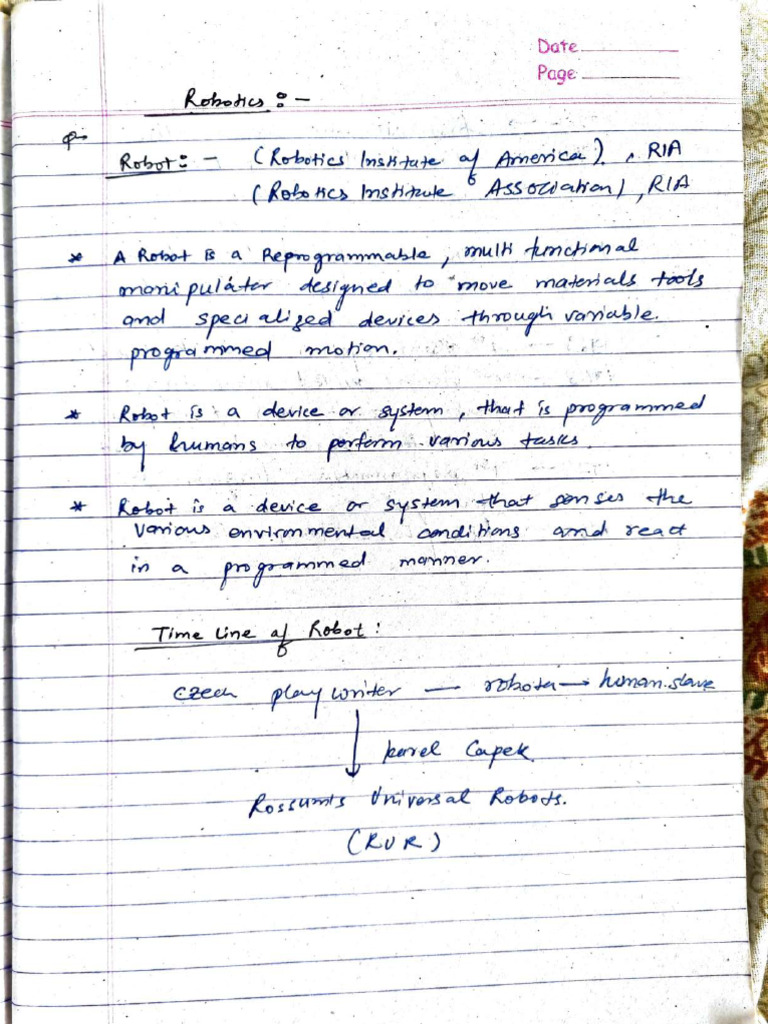 Date
Page
Robotics :-
Robot :- (Robotics Institute of America), RIA
(Robotics Institute Association), RIA
* A Robot is a Reprogrammable, multi functional
manipulator designed to move materials tools
and specialized devices through variable.
programmed motion.
* Robot is a device or system, that is programmed
by humans to perform various tasks.
* Robot is a device or system that senses the
various environmental conditions and react
in a programmed manner.
Time Line of Robot :
Czech play writer — robota → human slave
karel Capek
Rossum's Universal Robots.
(RUR)